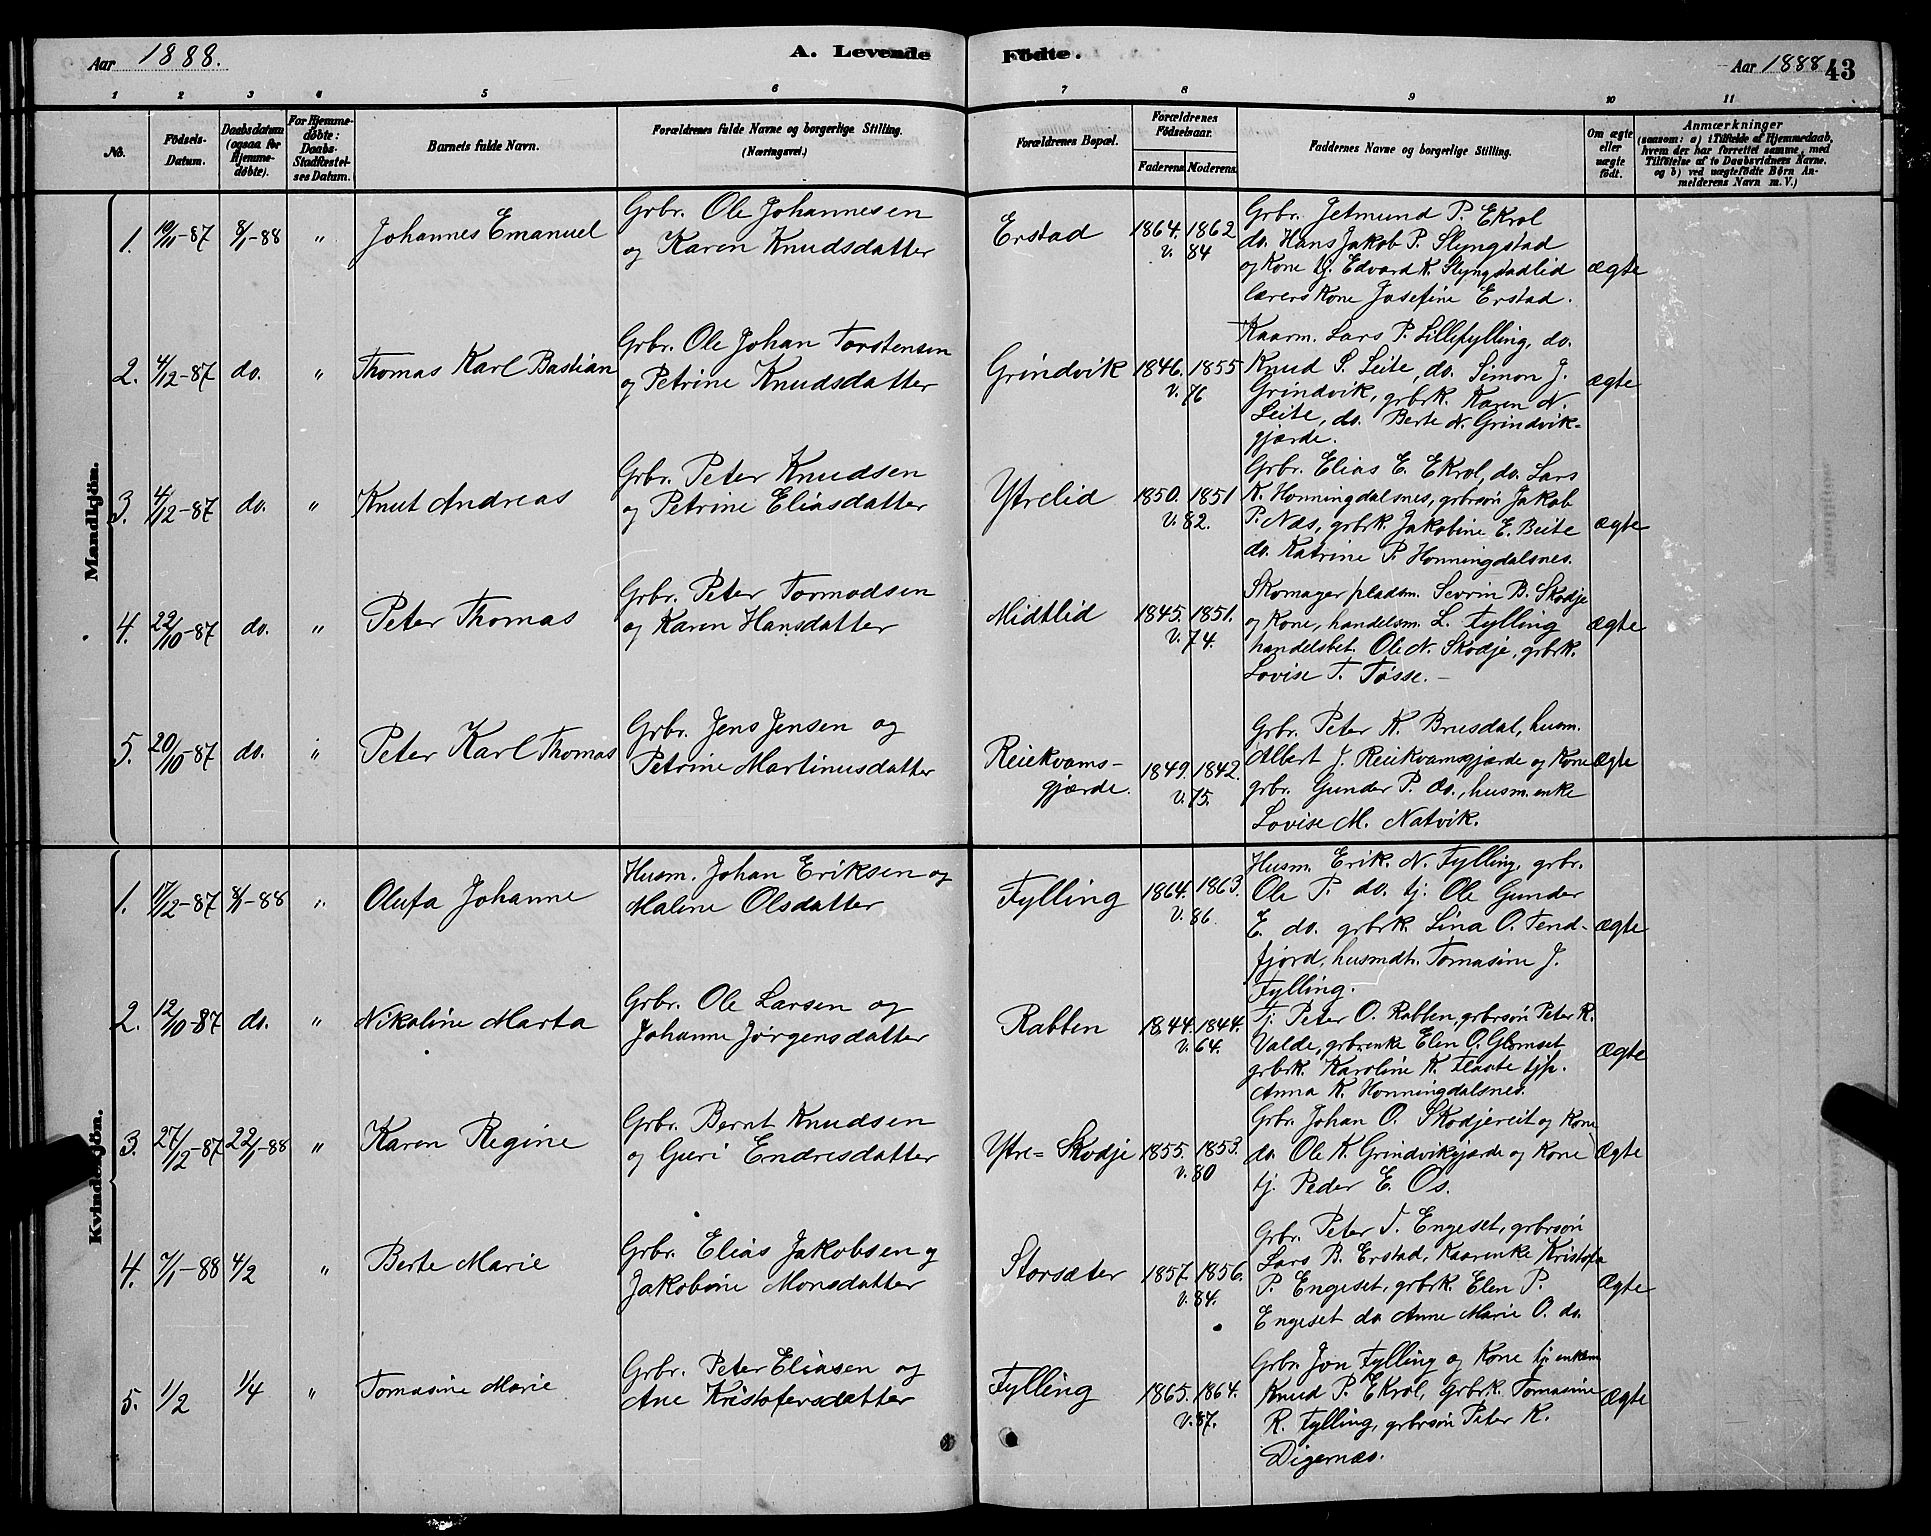 Aar 1888. A. Levende Födte. Aar 1888 43
1 2 3 4 5 6 7 8 9 10 11
No.
Födsels-
Datum.
Daabsdatum
(ogsaa for
Hjemme-
döbte).
For Hjemme-
döbte:
Daabs-
Stadfæstel-
ses Datum.
Barnets fulde Navn.
Forældrenes fulde Navne og borgerlige Stilling.
(Næringsvei.)
Forældrenes Bopæl.
Forældrenes
Födselsaar.
Faderens Moderens.
Faddernes Navne og borgerlige Stilling.
Om ægte
eller
uægte
födt.
Anmærkninger
(saasom: a) i Tilfælde af Hjemmedaab,
hvem der har forrettet samme, med
Tilföielse af to Daabsvidners Navne.
og b) ved uægtefödte Börn An-
melderens Navn m. V.)
Mandkjön.
1. 10/11-87 8/1-88 " Johannes Emanuel
Grbr. Ole Johannesen
og Karen Knudsdatter
Erstad 1864. 1862
V. 84
Grbr. Jetmund P. Ekrol
do. Hans Jakob P. Slyngstad
og Kone tj. Edvard K. Slyngstadlid
lærers Kone Josefine Erstad.
ægte
2. 4/12-87 do. " Thomas Karl Bastian
Grbr. Ole Johan Torstensen
og Petrine Knudsdatter
Grindvik 1846. 1855
V. 76
Kaarm. Lars P. Lillefylling, do.
Knud S. Leite, do. Simon J.
Grindvik, grbrk. Karen N.
Leite, do. Berte N. Grindvik-
gjærde.
ægte
3. 4/12-87 do. " Knut Andreas
Grbr. Peter Knudsen
og Petrine Eliasdatter
Ytrelid 1850. 1851
V. 82.
Grbr. Elias E. Ekrol, do. Lars
K. Honningdalsnes, grbrsön Jakob
P. Næs, grbrk. Jakobine E. Beite
do. Katrine P. Honningdalsnes.
ægte
4. 22/10-87 do. " Peter Thomas
Grbr. Peter Tormodsen
og Karen Hansdatter
Midtlid 1845. 1851.
V. 74.
Skomager pladsm. Sevrin B. Skodje
og Kone, handelsm. L. Fylling
handelsbet. Ole N. Skodje, grbrk.
Lovise T. Tøsse.-
ægte
5. 20/10-87 do. " Peter Karl Thomas
Grbr. Jens Jensen og
Petrine Martinusdatter
Reiekvams-
gjærde.
1849. 1842.
V. 75.
Grbr. Peter K. Brusdal, husm.
Albert J. Reiekvamsgjærde og Kone
grbr. Gunder P. do., husm.enke
Lovise M. Natvik.
ægte
Kvindekjön.
1. 17/12-87 8/1-88 " Olufa Johanne
Husm. Johan Eriksen og
Maline Olsdatter
Fylling 1864. 1863.
V. 86.
Husm. Erik. N. Fylling, grbr.
Ole P. do. tj. Ole Gunder
E. do. grbrk. Lina O. Tend-
fjord, husmdtr. Tomasine J.
Fylling.
ægte
2. 12/10-87 do. " Nikoline Marta
Grbr. Ole Larsen og
Johanne Jörgensdatter
Rabben 1844. 1844.
V. 64.
Tj. Peter O. Rabben, grbrsön Peter R.
Valde, grbrenke Elen O. Glomset
grbrk. Karoline K. Flaate tjp.
Anna K. Honningdalsnes.
ægte
3. 27/12-87 22/1-88 " Karen Regine
Grbr. Bernt Knudsen
og Guri Endresdatter
Ytre= Skodje 1855. 1853.
V. 80
Grbr. Johan O. Skodjereit og Kone
do. Ole K. Grindvikgjærde og Kone
tj. Peder E. Os.
ægte
4. 7/1-88 4/2 " Berte Marie
Grbr. Elias Jakobsen og
Jakobine Monsdatter
Storsæter 1857. 1856.
V. 84.
Grbr. Peter J. Engeset, grbrsön
Lars B. Erstad, Kaarenke Kristofa
P. Engeset, grbrk. Elen P.
Engeset do. Anne Marie O. do.
ægte
5. 1/2 1/4 " Tomasine Marie
Grbr. Peter Eliasen og
Ane Kristofersdatter
Fylling 1865. 1864.
V. 87.
Grbr. Jon Fylling og Kone tj. enkem
Knud P. Ekrol, Grbrk. Tomasine
R. Fylling, grbrsön Peter K.
Digernæs.
ægte